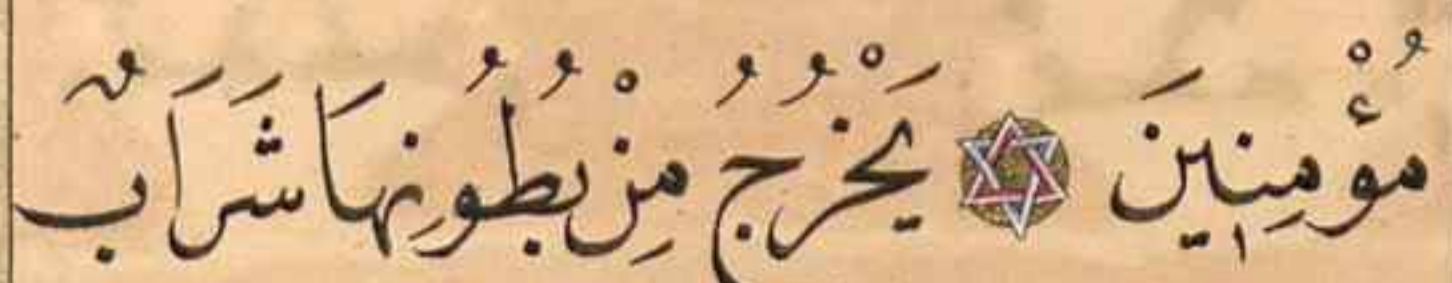 مُؤْمِنِينَ يَخْرُجُ مِنْ بُطُونِهَا شَرَابٌ